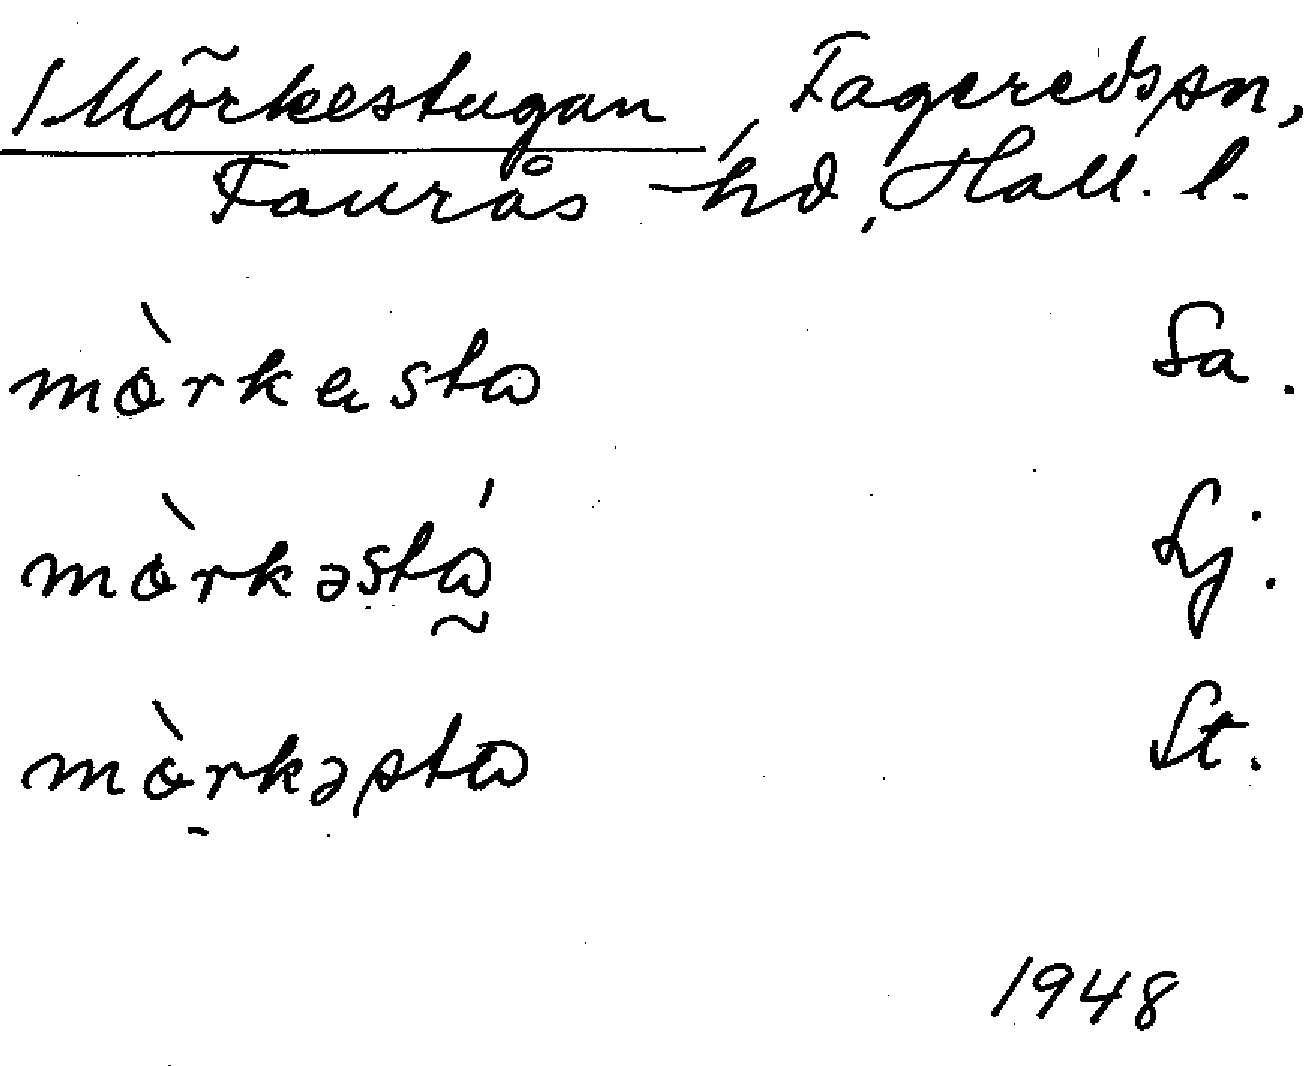 /Mörkestugan, Fageredssn,
Faurås hd, Hall. l.
mòrkesta Sa.
mòrkəstá Lj.
mòrkəsta St.
1948